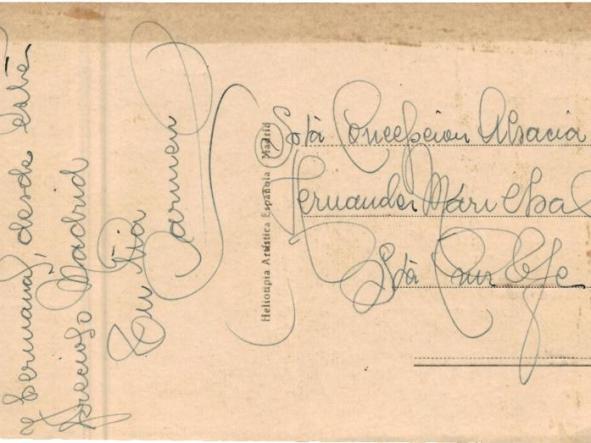 y hermanas, desde este
precioso Madrid
Tu tía
Carmen
Heliotipia Artística Española Madrid
Srtá Concepción Alsacia
Fernandez
Stà